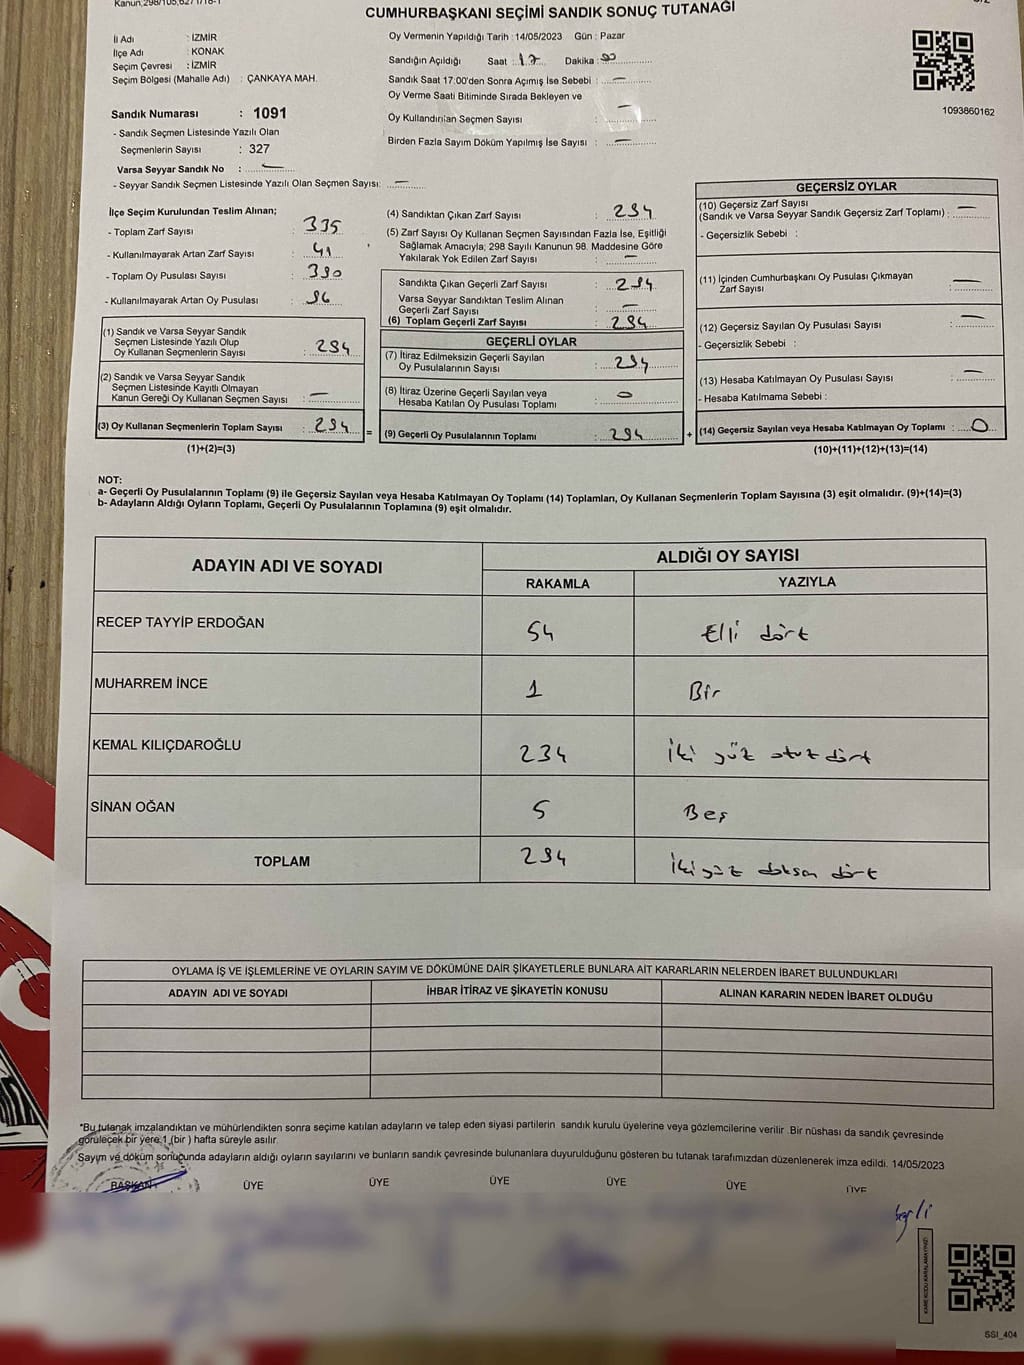 Kanun,298/105,
CUMHURBAŞKANI SEÇİMİ SANDIK SONUÇ TUTANAĞI
İl Adı : İZMİR
İlçe Adı : KONAK
Seçim Çevresi : İZMİR
Seçim Bölgesi (Mahalle Adı) : ÇANKAYA MAH.
Oy Vermenin Yapıldığı Tarih : 14/05/2023 Gün : Pazar
Sandığın Açıldığı Saat : 17 Dakika :
Sandık Saat 17:00'den Sonra Açımış İse Sebebi : —
Oy Verme Saati Bitiminde Sırada Bekleyen ve
Oy Kullandırılan Seçmen Sayısı : —
Birden Fazla Sayım Döküm Yapılmış İse Sayısı : —
1093860162
Sandık Numarası : 1091
- Sandık Seçmen Listesinde Yazılı Olan
Seçmenlerin Sayısı : 327
Varsa Seyyar Sandık No : —
- Seyyar Sandık Seçmen Listesinde Yazılı Olan Seçmen Sayısı: —
İlçe Seçim Kurulundan Teslim Alınan;
- Toplam Zarf Sayısı : 335
- Kullanılmayarak Artan Zarf Sayısı : 41
- Toplam Oy Pusulası Sayısı : 390
- Kullanılmayarak Artan Oy Pusulası : 96
(1) Sandık ve Varsa Seyyar Sandık
Seçmen Listesinde Yazılı Olup
Oy Kullanan Seçmenlerin Sayısı : 294
(2) Sandık ve Varsa Seyyar Sandık
Seçmen Listesinde Kayıtlı Olmayan
Kanun Gereği Oy Kullanan Seçmen Sayısı : —
(3) Oy Kullanan Seçmenlerin Toplam Sayısı : 294 =
(1)+(2)=(3)
(4) Sandıktan Çıkan Zarf Sayısı : 294
(5) Zarf Sayısı Oy Kullanan Seçmen Sayısından Fazla İse, Eşitliği
Sağlamak Amacıyla; 298 Sayılı Kanunun 98. Maddesine Göre
Yakılarak Yok Edilen Zarf Sayısı : —
Sandıkta Çıkan Geçerli Zarf Sayısı : 294
Varsa Seyyar Sandıktan Teslim Alınan
Geçerli Zarf Sayısı : —
(6) Toplam Geçerli Zarf Sayısı : 294
GEÇERLİ OYLAR
(7) İtiraz Edilmeksizin Geçerli Sayılan
Oy Pusulalarının Sayısı : 294
(8) İtiraz Üzerine Geçerli Sayılan veya
Hesaba Katılan Oy Pusulası Toplamı : 0
(9) Geçerli Oy Pusulalarının Toplamı : 294 +
GEÇERSİZ OYLAR
(10) Geçersiz Zarf Sayısı
(Sandık ve Varsa Seyyar Sandık Geçersiz Zarf Toplamı) : —
- Geçersizlik Sebebi :
(11) İçinden Cumhurbaşkanı Oy Pusulası Çıkmayan
Zarf Sayısı : —
(12) Geçersiz Sayılan Oy Pusulası Sayısı : —
- Geçersizlik Sebebi :
(13) Hesaba Katılmayan Oy Pusulası Sayısı : —
- Hesaba Katılmama Sebebi :
(14) Geçersiz Sayılan veya Hesaba Katılmayan Oy Toplamı : 0
(10)+(11)+(12)+(13)=(14)
NOT:
a- Geçerli Oy Pusulalarının Toplamı (9) ile Geçersiz Sayılan veya Hesaba Katılmayan Oy Toplamı (14) Toplamları, Oy Kullanan Seçmenlerin Toplam Sayısına (3) eşit olmalıdır. (9)+(14)=(3)
b- Adayların Aldığı Oyların Toplamı, Geçerli Oy Pusulalarının Toplamına (9) eşit olmalıdır.
ADAYIN ADI VE SOYADI ALDIĞI OY SAYISI
RAKAMLA YAZIYLA
RECEP TAYYİP ERDOĞAN 54 Elli dört
MUHARREM İNCE 1 Bir
KEMAL KILIÇDAROĞLU 234 İki yüz otuz dört
SİNAN OĞAN 5 Beş
TOPLAM 294 İki yüz doksan dört
OYLAMA İŞ VE İŞLEMLERİNE VE OYLARIN SAYIM VE DÖKÜMÜNE DAİR ŞİKAYETLERLE BUNLARA AİT KARARLARIN NELERDEN İBARET BULUNDUKLARI
ADAYIN ADI VE SOYADI İHBAR İTİRAZ VE ŞİKAYETİN KONUSU ALINAN KARARIN NEDEN İBARET OLDUĞU
*Bu tutanak imzalandıktan ve mühürlendikten sonra seçime katılan adayların ve talep eden siyasi partilerin sandık kurulu üyelerine veya gözlemcilerine verilir. Bir nüshası da sandık çevresinde
görülecek bir yere 1 (bir ) hafta süreyle asılır.
Sayım ve döküm sonuçunda adayların aldığı oyların sayılarını ve bunların sandık çevresinde bulunanlara duyurulduğunu gösteren bu tutanak tarafımızdan düzenlenerek imza edildi. 14/05/2023
BAŞKAN ÜYE ÜYE ÜYE ÜYE ÜYE ÜYE
SSI_404